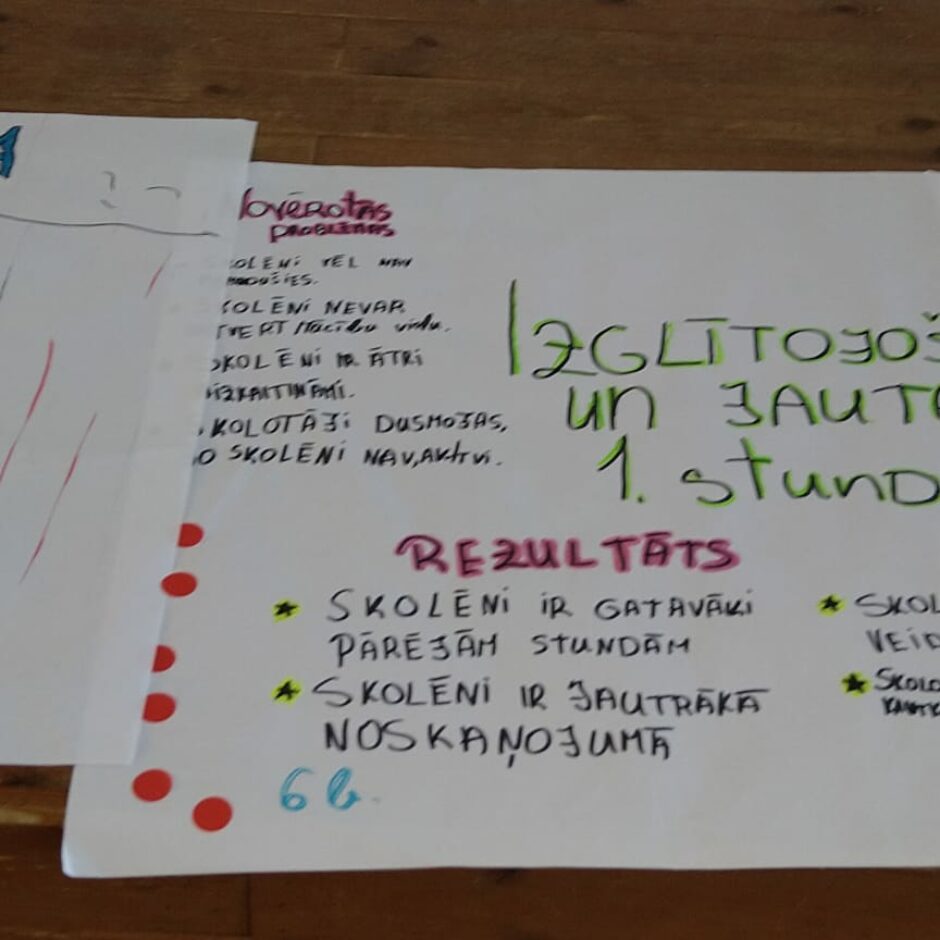 ovērotās
problēmas
kolēni vēl nav
kolēni nevar
tvert mācību vielu.
skolēni ir ātri
aizkaitināmi.
skolotāji dusmojas,
o skolēni nav aktīvi.
Izglītojoš
un jaut
1. stund
REZULTĀTS
SKOLĒNI IR GATAVĀKI
PĀRĒJĀM STUNDĀM
SKOLĒNI IR JAUTRĀKĀ
NOSKAŅOJUMĀ
SKOL
VEID
SKOLO
6 b.